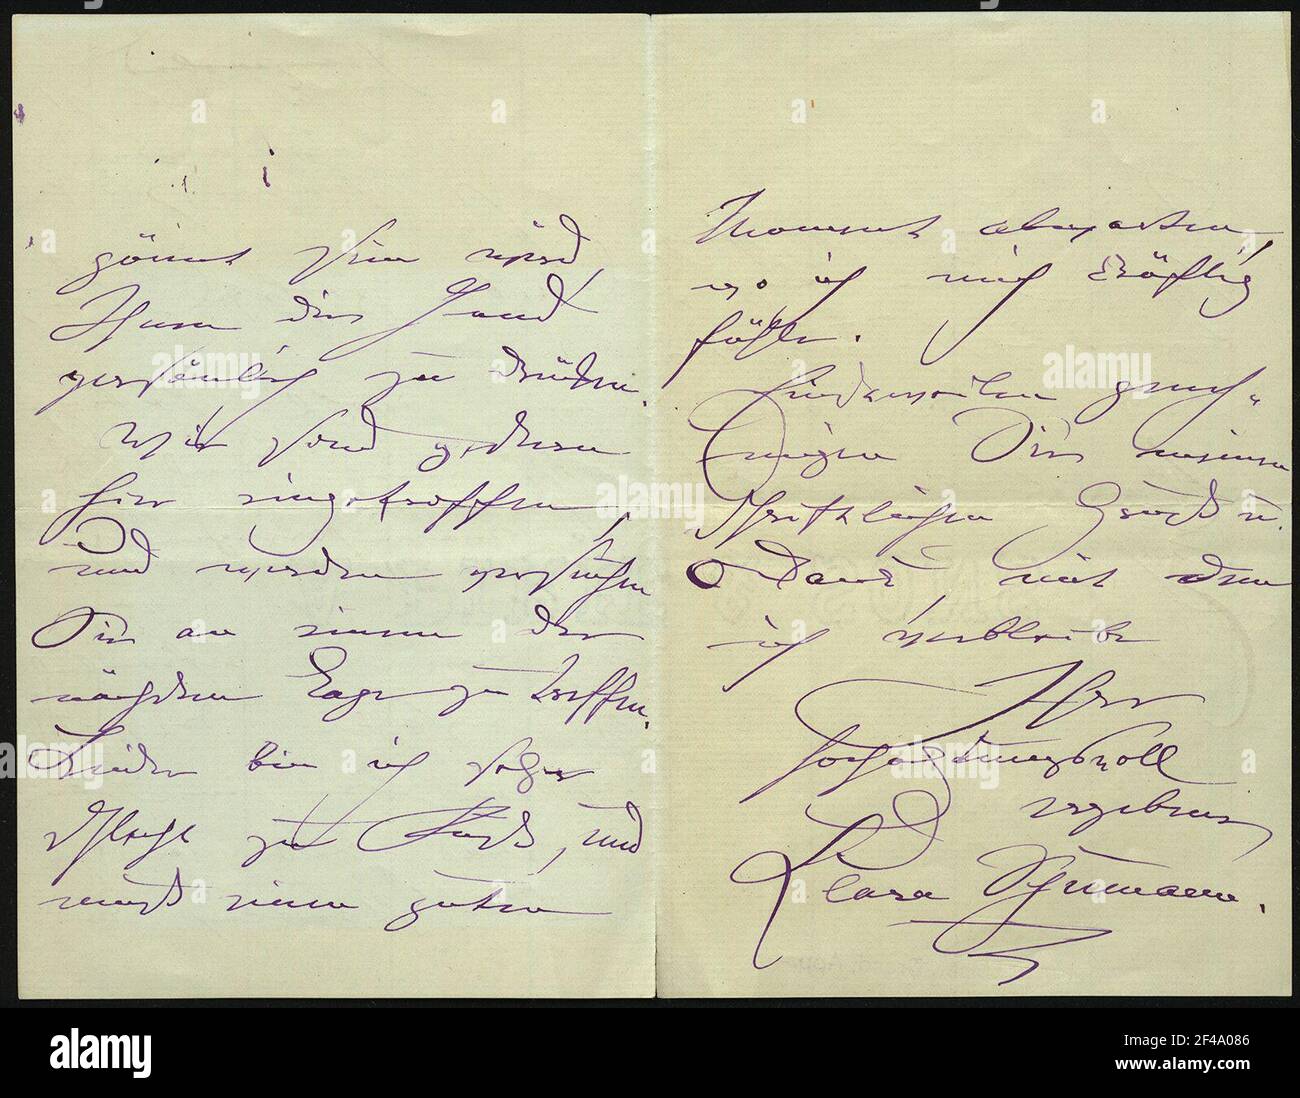 gönnt sein wird,
Ihnen die Hand
persönlich zu drücken.
Wir sind gestern
hier eingetroffen,
und werden versuchen
Sie an einem der
nächsten Tage zu treffen.
Leider bin ich sehr
zu Fuß, und
muß einen guten
Moment abwarten,
wo ich mich kräftig
fühle.
Einstweilen geneh-
migen Sie meinen
herzlichen Gruß u.
Dank, mit dem
ich verbleibe
Ihre
hochachtungsvoll
ergebene
Clara Schumann.
alamy
Image ID: 2F4A086
www.alamy.com